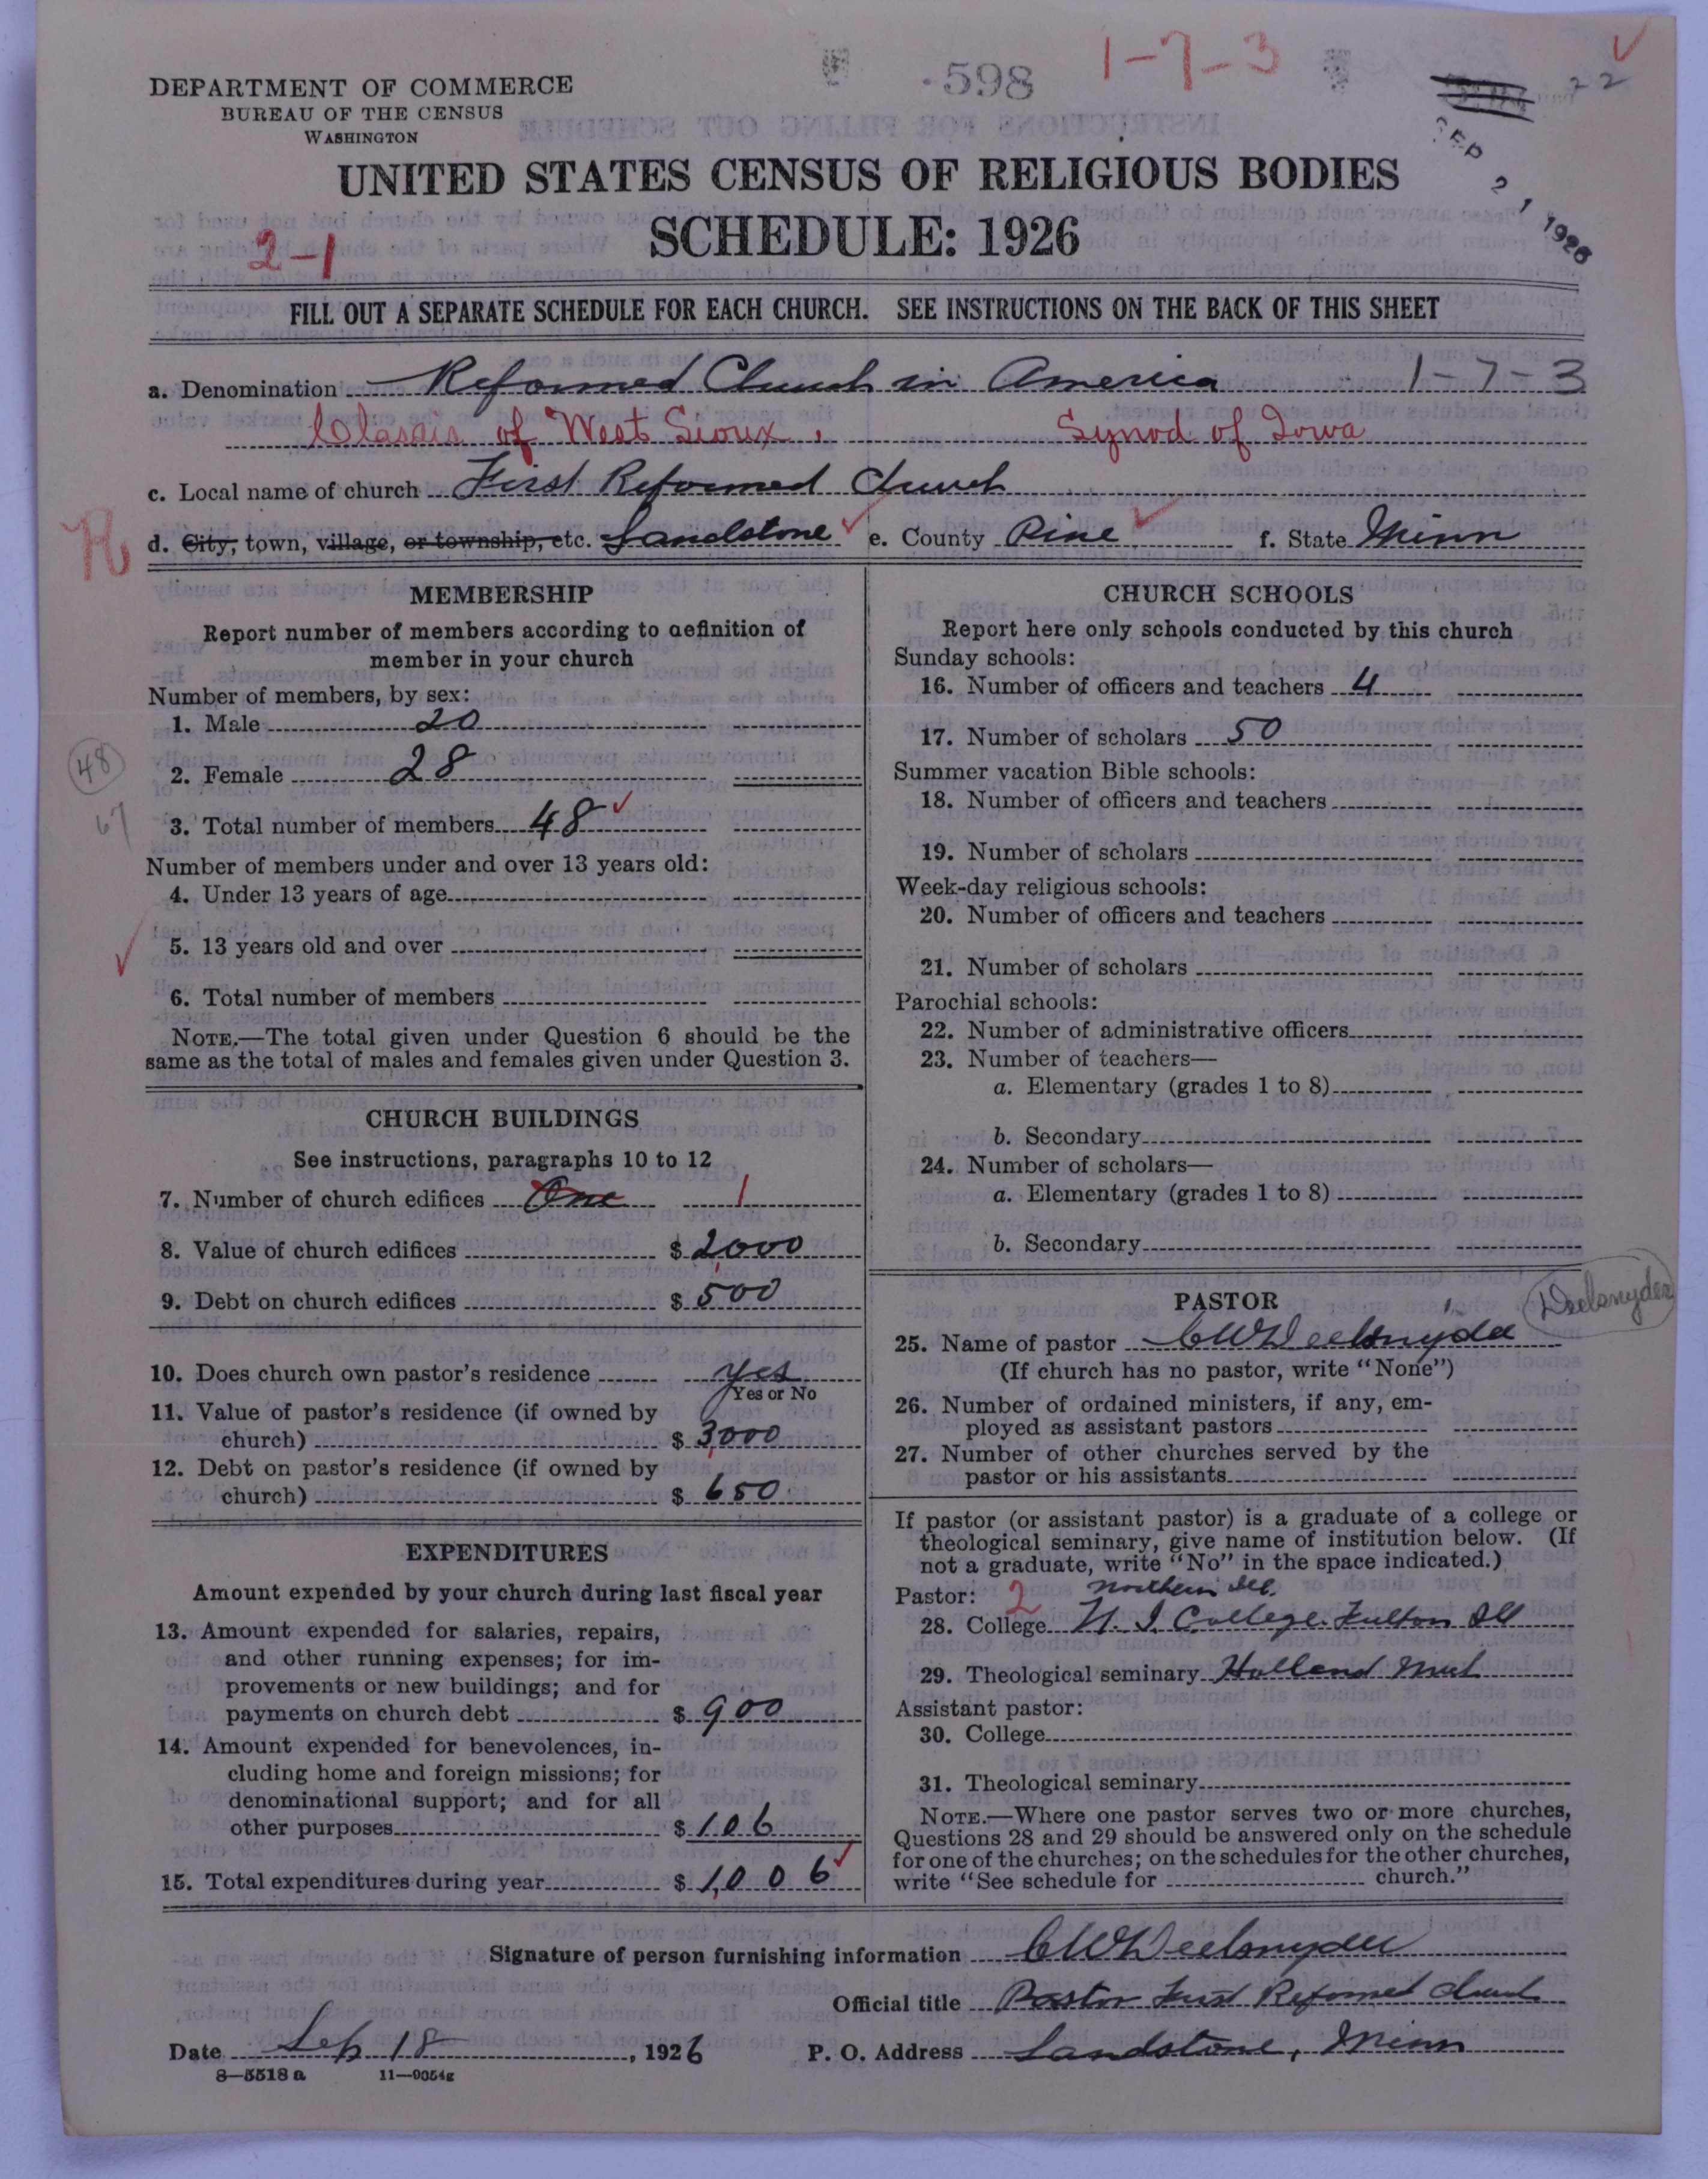 598 1-7-3
22
DEPARTMENT OF COMMERCE
BUREAU OF THE CENSUS
WASHINGTON
SEP 21 1926
UNITED STATES CENSUS OF RELIGIOUS BODIES
SCHEDULE: 1926
2-1
FILL OUT A SEPARATE SCHEDULE FOR EACH CHURCH. SEE INSTRUCTIONS ON THE BACK OF THIS SHEET
a. Denomination Reformed Church in America 1-7-3
Classis of West Sioux, Synod of Iowa
c. Local name of church First Reformed Church
R
d. City, town, village, or township, etc. Sandstone e. County Pine f. State Minn
MEMBERSHIP
Report number of members according to definition of
member in your church
Number of members, by sex:
1. Male 20
2. Female 28
48
67
3. Total number of members 48
Number of members under and over 13 years old:
4. Under 13 years of age
5. 13 years old and over
6. Total number of members
NOTE.—The total given under Question 6 should be the
same as the total of males and females given under Question 3.
CHURCH BUILDINGS
See instructions, paragraphs 10 to 12
7. Number of church edifices One 1
8. Value of church edifices $ 2000
9. Debt on church edifices $ 500
10. Does church own pastor's residence yes
Yes or No
11. Value of pastor's residence (if owned by
church) $ 3000
12. Debt on pastor's residence (if owned by
church) $ 650
EXPENDITURES
Amount expended by your church during last fiscal year
13. Amount expended for salaries, repairs,
and other running expenses; for im-
provements or new buildings; and for
payments on church debt $ 900
14. Amount expended for benevolences, in-
cluding home and foreign missions; for
denominational support; and for all
other purposes $ 106
15. Total expenditures during year $ 1,006
CHURCH SCHOOLS
Report here only schools conducted by this church
Sunday schools:
16. Number of officers and teachers 4
17. Number of scholars 50
Summer vacation Bible schools:
18. Number of officers and teachers
19. Number of scholars
Week-day religious schools:
20. Number of officers and teachers
21. Number of scholars
Parochial schools:
22. Number of administrative officers
23. Number of teachers—
a. Elementary (grades 1 to 8)
b. Secondary
24. Number of scholars—
a. Elementary (grades 1 to 8)
b. Secondary
PASTOR
Deelsnyder
25. Name of pastor C W Deelsnyder
(If church has no pastor, write "None")
26. Number of ordained ministers, if any, em-
ployed as assistant pastors
27. Number of other churches served by the
pastor or his assistants
If pastor (or assistant pastor) is a graduate of a college or
theological seminary, give name of institution below. (If
not a graduate, write "No" in the space indicated.)
Pastor: 2 Northern Ill.
28. College N. I. College Fulton Ill
29. Theological seminary Holland Mich
Assistant pastor:
30. College
31. Theological seminary
NOTE.—Where one pastor serves two or more churches,
Questions 28 and 29 should be answered only on the schedule
for one of the churches; on the schedules for the other churches,
write "See schedule for church."
Signature of person furnishing information C W Deelsnyder
Official title Pastor First Reformed Church
Date Sep 18, 1926 P. O. Address Sandstone, Minn
8—5518 a 11—9354g